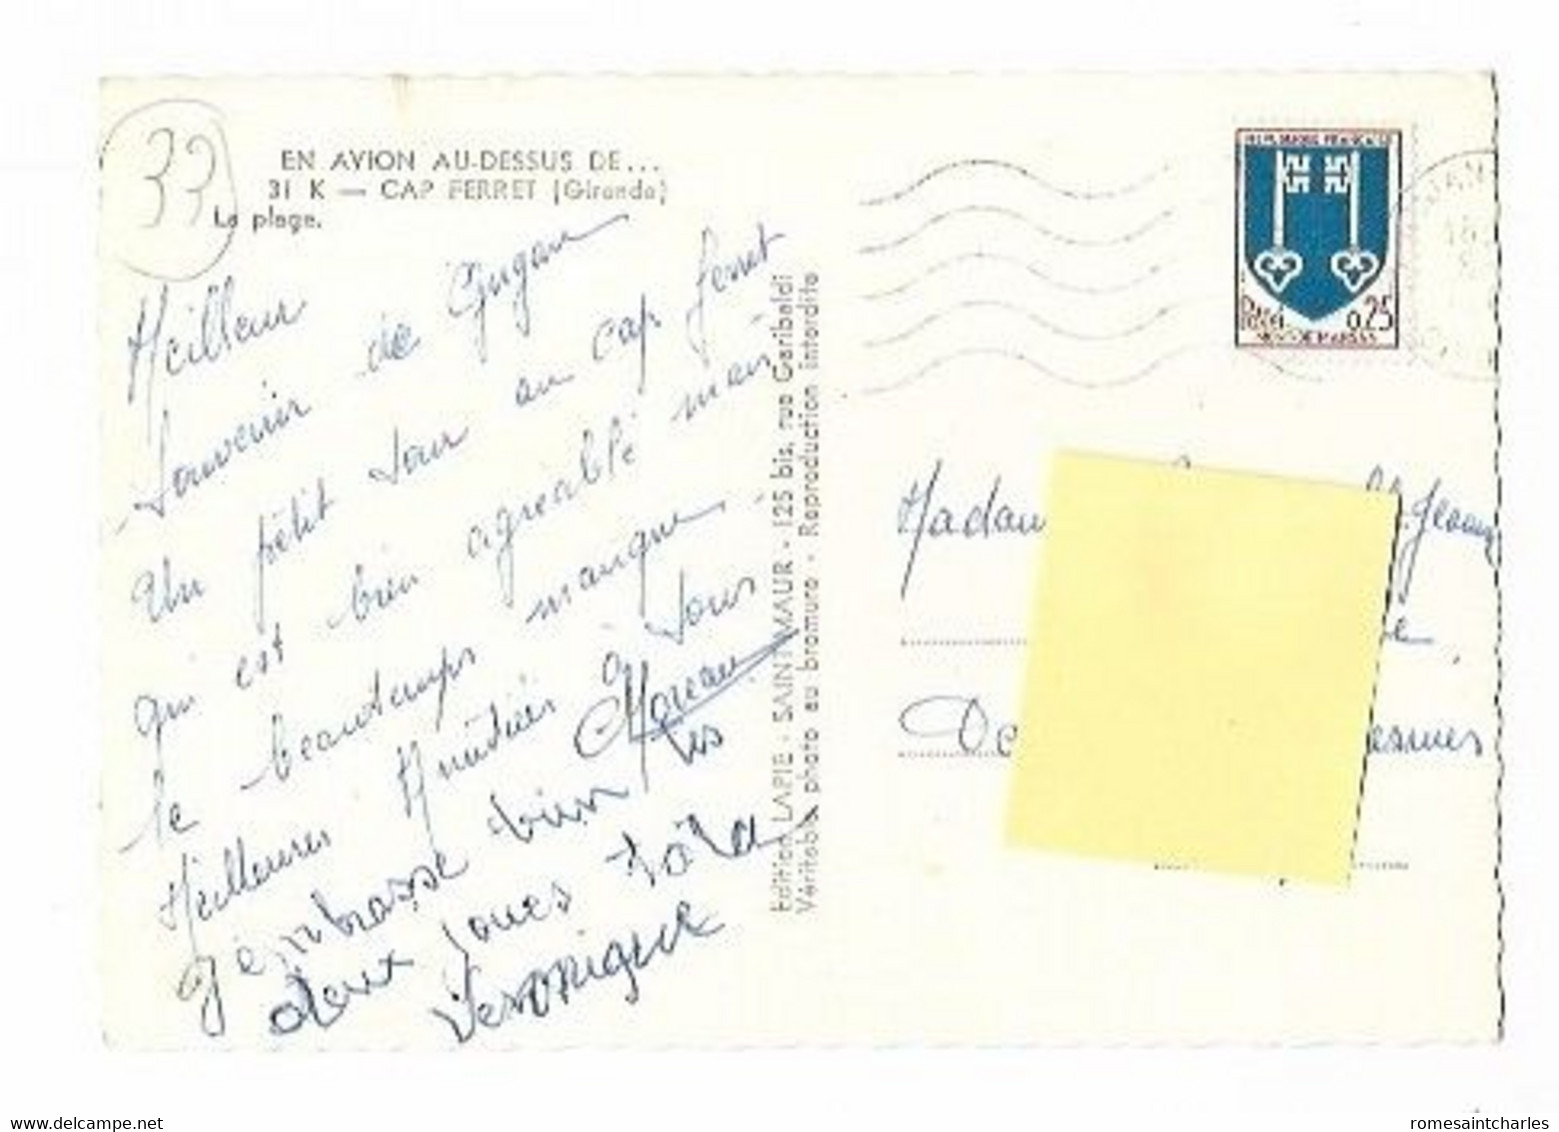 33
EN AVION AU-DESSUS DE...
31 K — CAP FERRET (Gironde)
La plage.
Meilleur
Souvenir de Gujan
Un pétit tour au cap ferret
qui est bien agréablé mais
le beau temps manque
Meilleures Amitiées a tous
Moreau
J'embrasse bien les
deux joues
Veronique
Edition LAPIE - SAINT-MAUR - 125 bis, rue Garibaldi
Véritable photo au bromure - Reproduction interdite
REPUBLIQUE FRANÇAISE
0,25
MONT-DE-MARSAN
Madam
Jeann
De
esmes
romesaintcharles